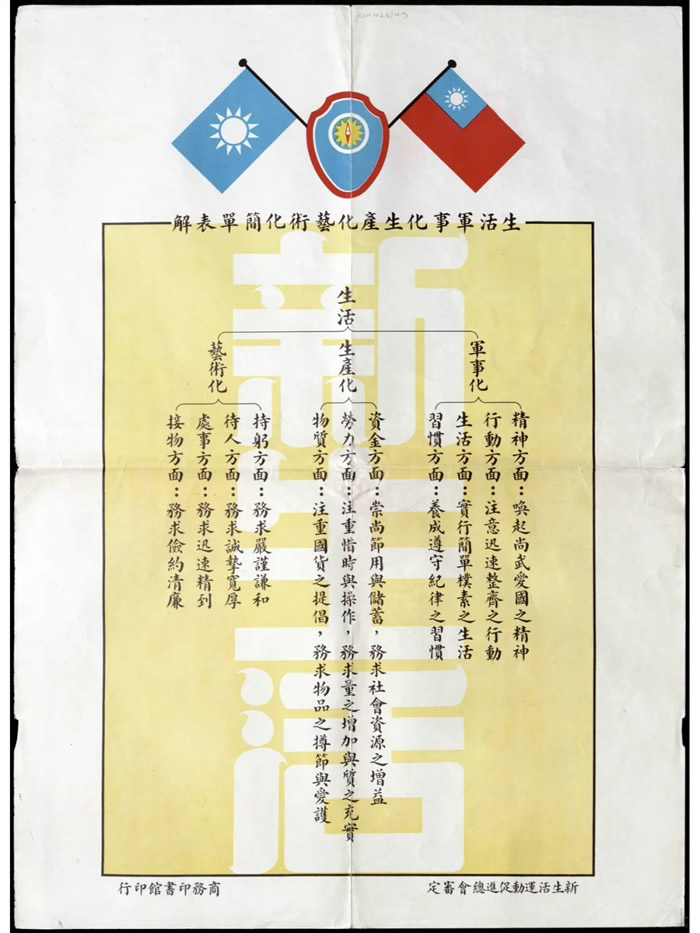 生活軍事化生產化藝術化簡單表解
新生活
生活
軍事化
精神方面：喚起尚武愛國之精神
行動方面：注意迅速整齊之行動
生活方面：實行簡單樸素之生活
習慣方面：養成遵守紀律之習慣
生產化
資金方面：崇尚節用與儲蓄，務求社會資源之增益
勞力方面：注重惜時與操作，務求量之增加與質之充實
物質方面：注重國貨之提倡，務求物品之撙節與愛護
藝術化
持躬方面：務求嚴謹謙和
待人方面：務求誠摯寬厚
處事方面：務求迅速精到
接物方面：務求儉約清廉
新生活運動促進總會審定
商務印書館印行